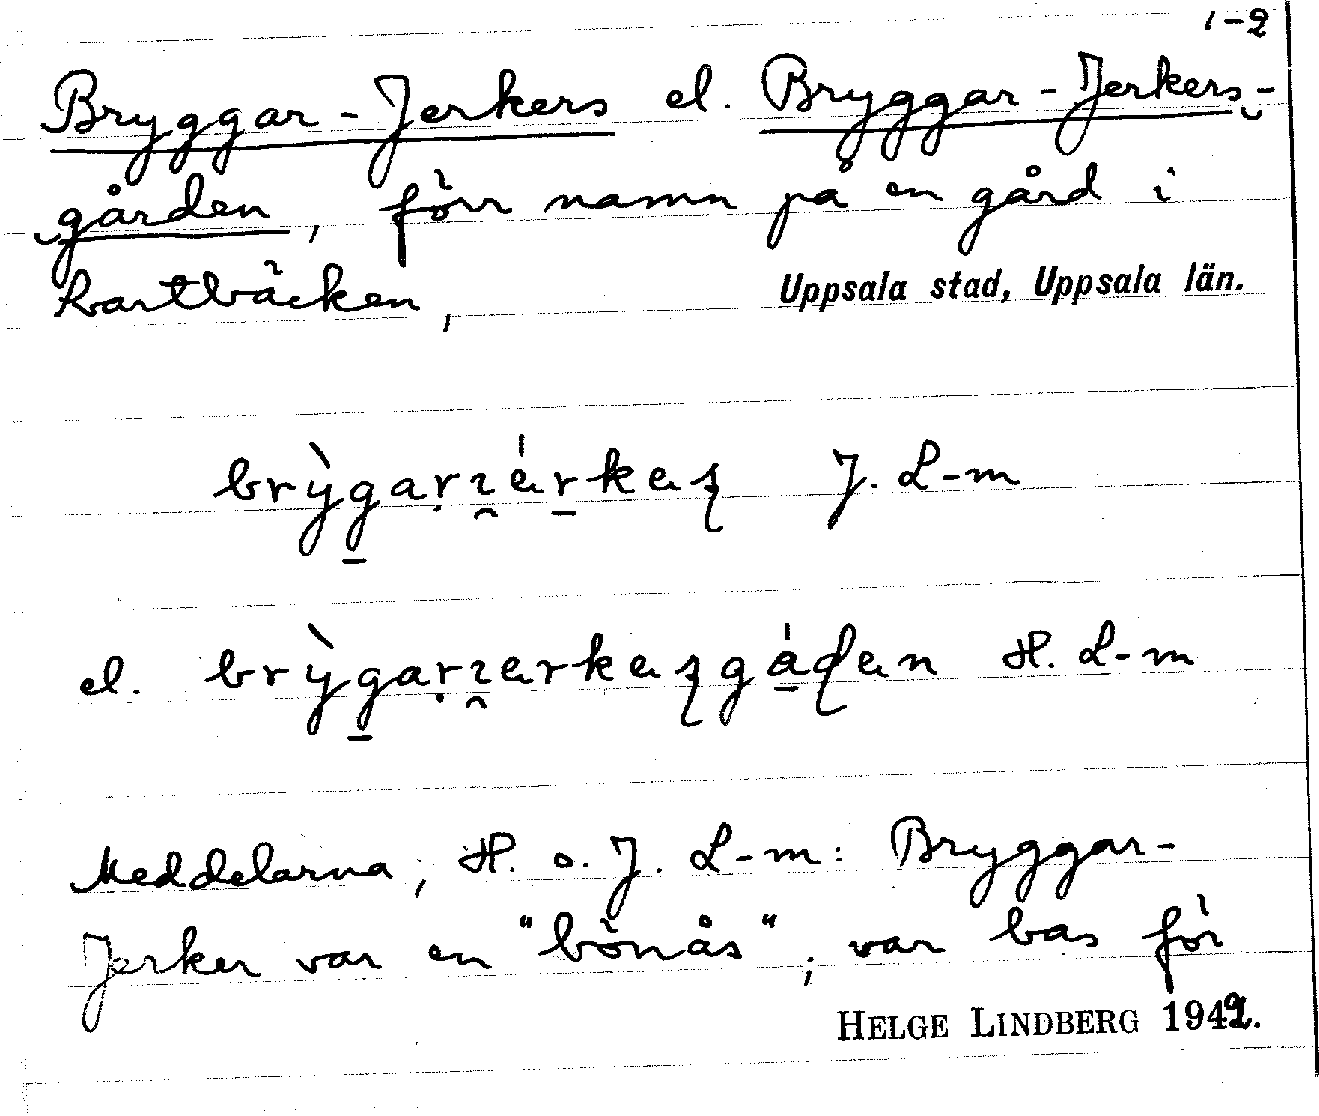 1-2
Bryggar-Jerkers el. Bryggar-Jerkers-
gården, förr namn på en gård i
Svartbäcken, Uppsala stad, Uppsala län.
J. L-m
el. H. L-m
Meddelarna, H. o. J. L-m: Bryggar-
Jerker var en "bönås", var bas för
HELGE LINDBERG 1942.